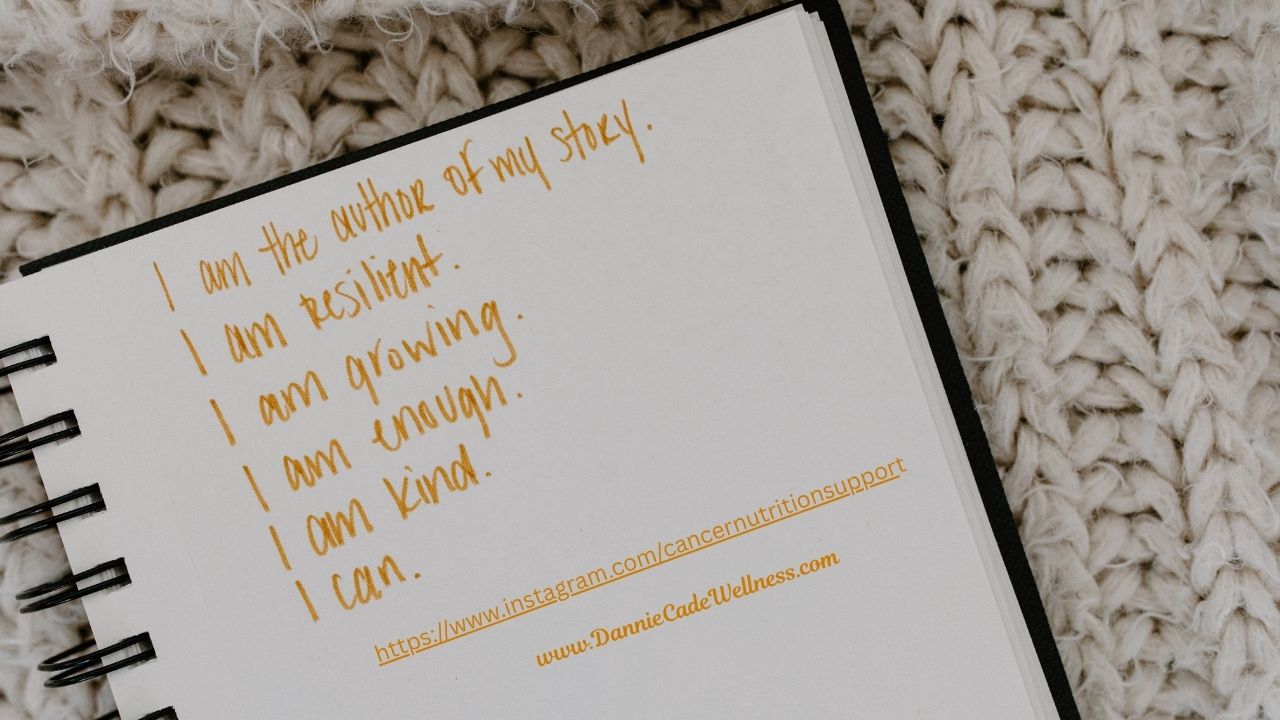 I am the author of my story.
I am resilient.
I am growing.
I am enough.
I am kind.
I can.
https://www.instagram.com/cancernutritionsupport
www.DannieCadeWellness.com